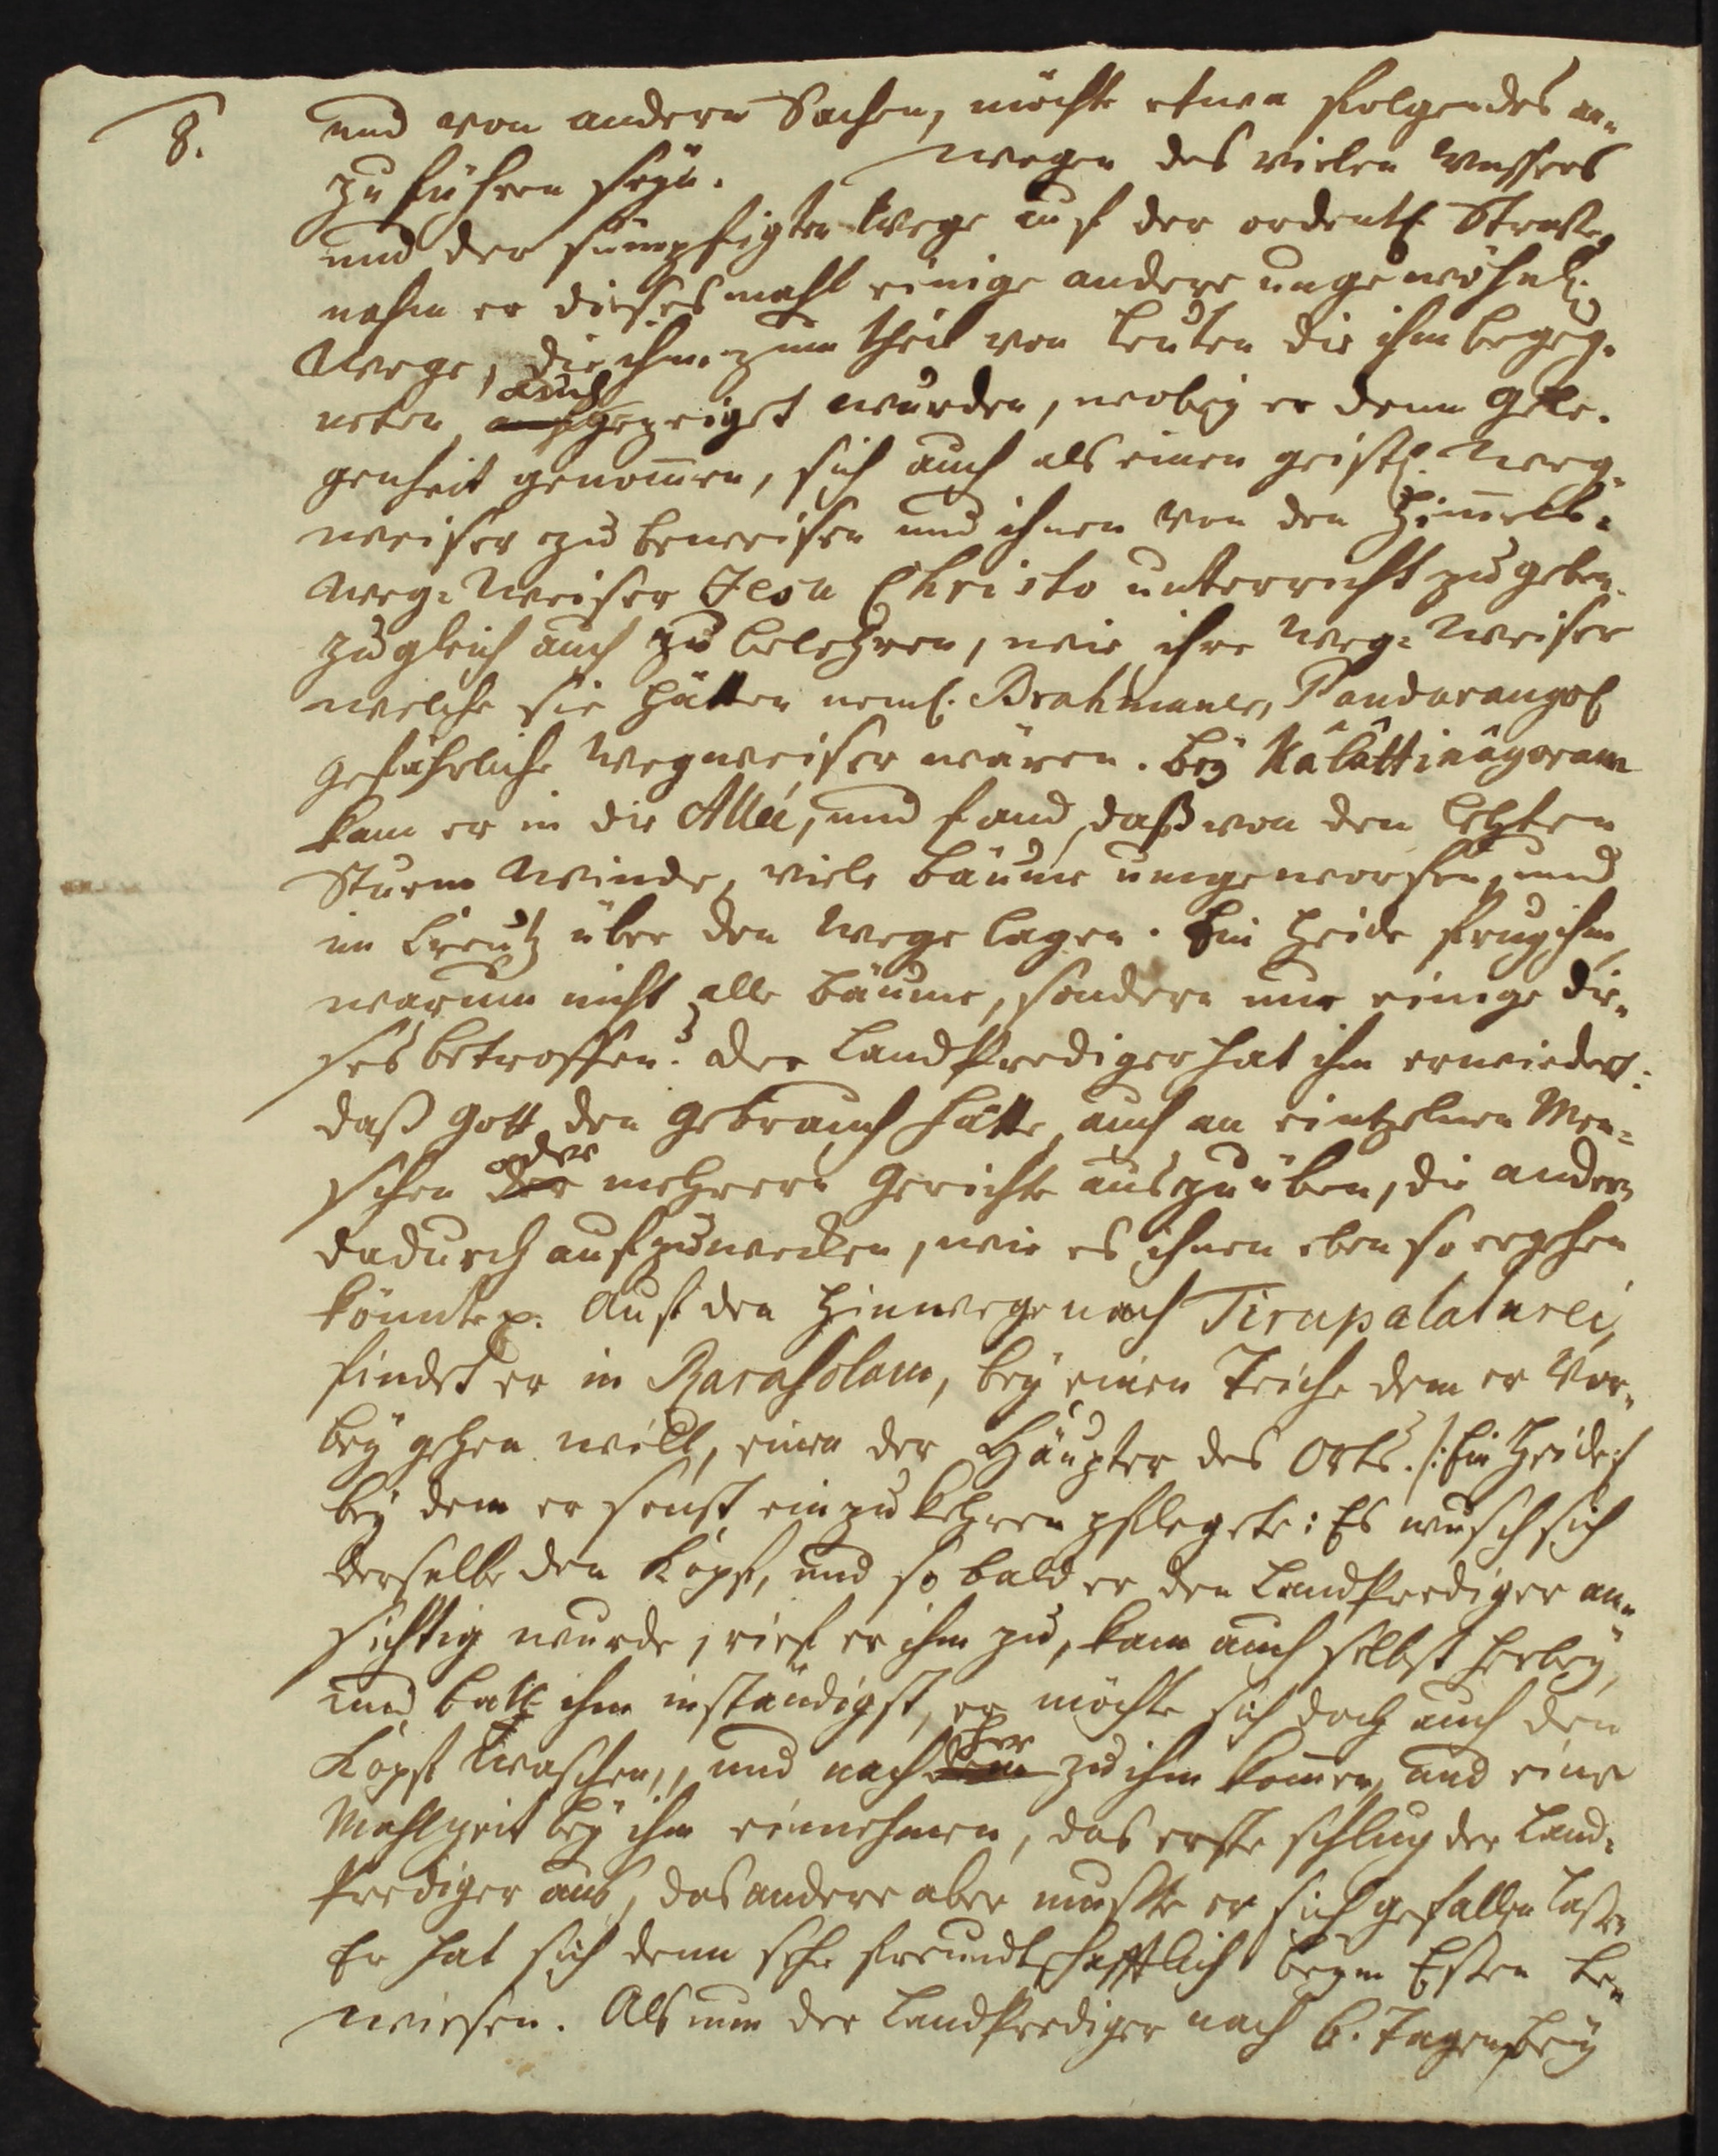 8.
und von andern Sachen, möchte etwa folgendes an¬
zuführen seyn. Wegen des vielen Wassers
und der sümpfigten Wege auf der ordentl. Straße,
nahm er dieses mahl einige andere ungewöhnl.
Wege, die ihm zum theil von Leuten die ihm begeg¬
neten auch gezeiget wurden, wobey er denn Gele¬
genheit genom̄en, sich auch als einen geistl. Weg¬
weiser zu beweisen und ihnen von den Him̄els¬
Weg-Weiser Jesu Christo unterricht zu geben
zugleich auch zu belehren, wie ihre Weg-Weiser
welche sie hätten neml. Brahmaner, Pandarangol
gefährliche Wegweiser wären. Bey Kâlâttinâgoram
kam er in die Allée, und fand, daß von den letzten
Sturm Winde, viele Bäume umgeworfen, und
im Creutz über den Wege lagen. Ein Heide frug ihm,
warum nicht alle Bäume, sondern nur einige die¬
ses betroffen? Der Landprediger hat ihm erwiedert:
daß Gott den Gebrauch hätte, auch an eintzelnen Men¬
schen oder mehrern Gerichte auszuüben, die andern
dadurch aufzuwecken, wie es ihnen eben so ergehen
könnte p. Auf den Hinwege nach Tirupalaturei,
findet er in Rarasolam, bey einen Teiche dem er vor¬
bey gehen will, einen der Häupter des Orts. /: Ein Heide :/
bey dem er sonst einzukehren pflegete: Es wusch sich
derselbe den Kopf, und so bald er den Landprediger an¬
sichtig wurde, rief er ihm zu, kam auch selbst herbey,
und bath ihm inständigst, er möchte sich doch auch den
Kopf waschen, und nachher zu ihm kom̄en, und eine
Mahlzeit bey ihm einnehmen, das erste schlug der Land¬
prediger aus, das andere aber muste er sich gefallen laßen
Er hat sich denn sehr freundschafftlich beym Eßen be¬
wiesen. Als nun der Landprediger nach 6. Tagen, bey